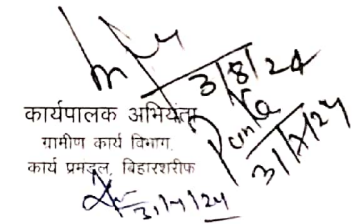 3/8/24
कार्यपालक अभियंता
ग्रामीण कार्य विभाग,
कार्य प्रमंडल, बिहारशरीफ
31/7/24
31/7/24